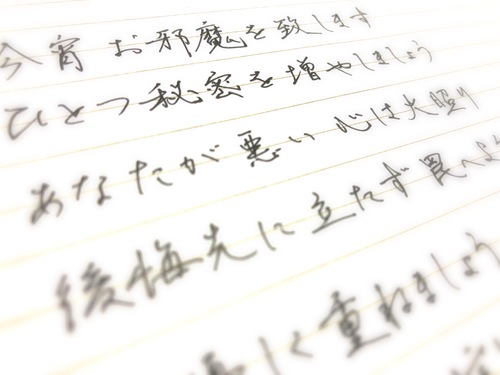 今宵 お邪魔を致します
ひとつ秘密を増やしましょう
あなたが悪い 心は大照り
後悔先に立たず 罠へよ
しく重ねましょう